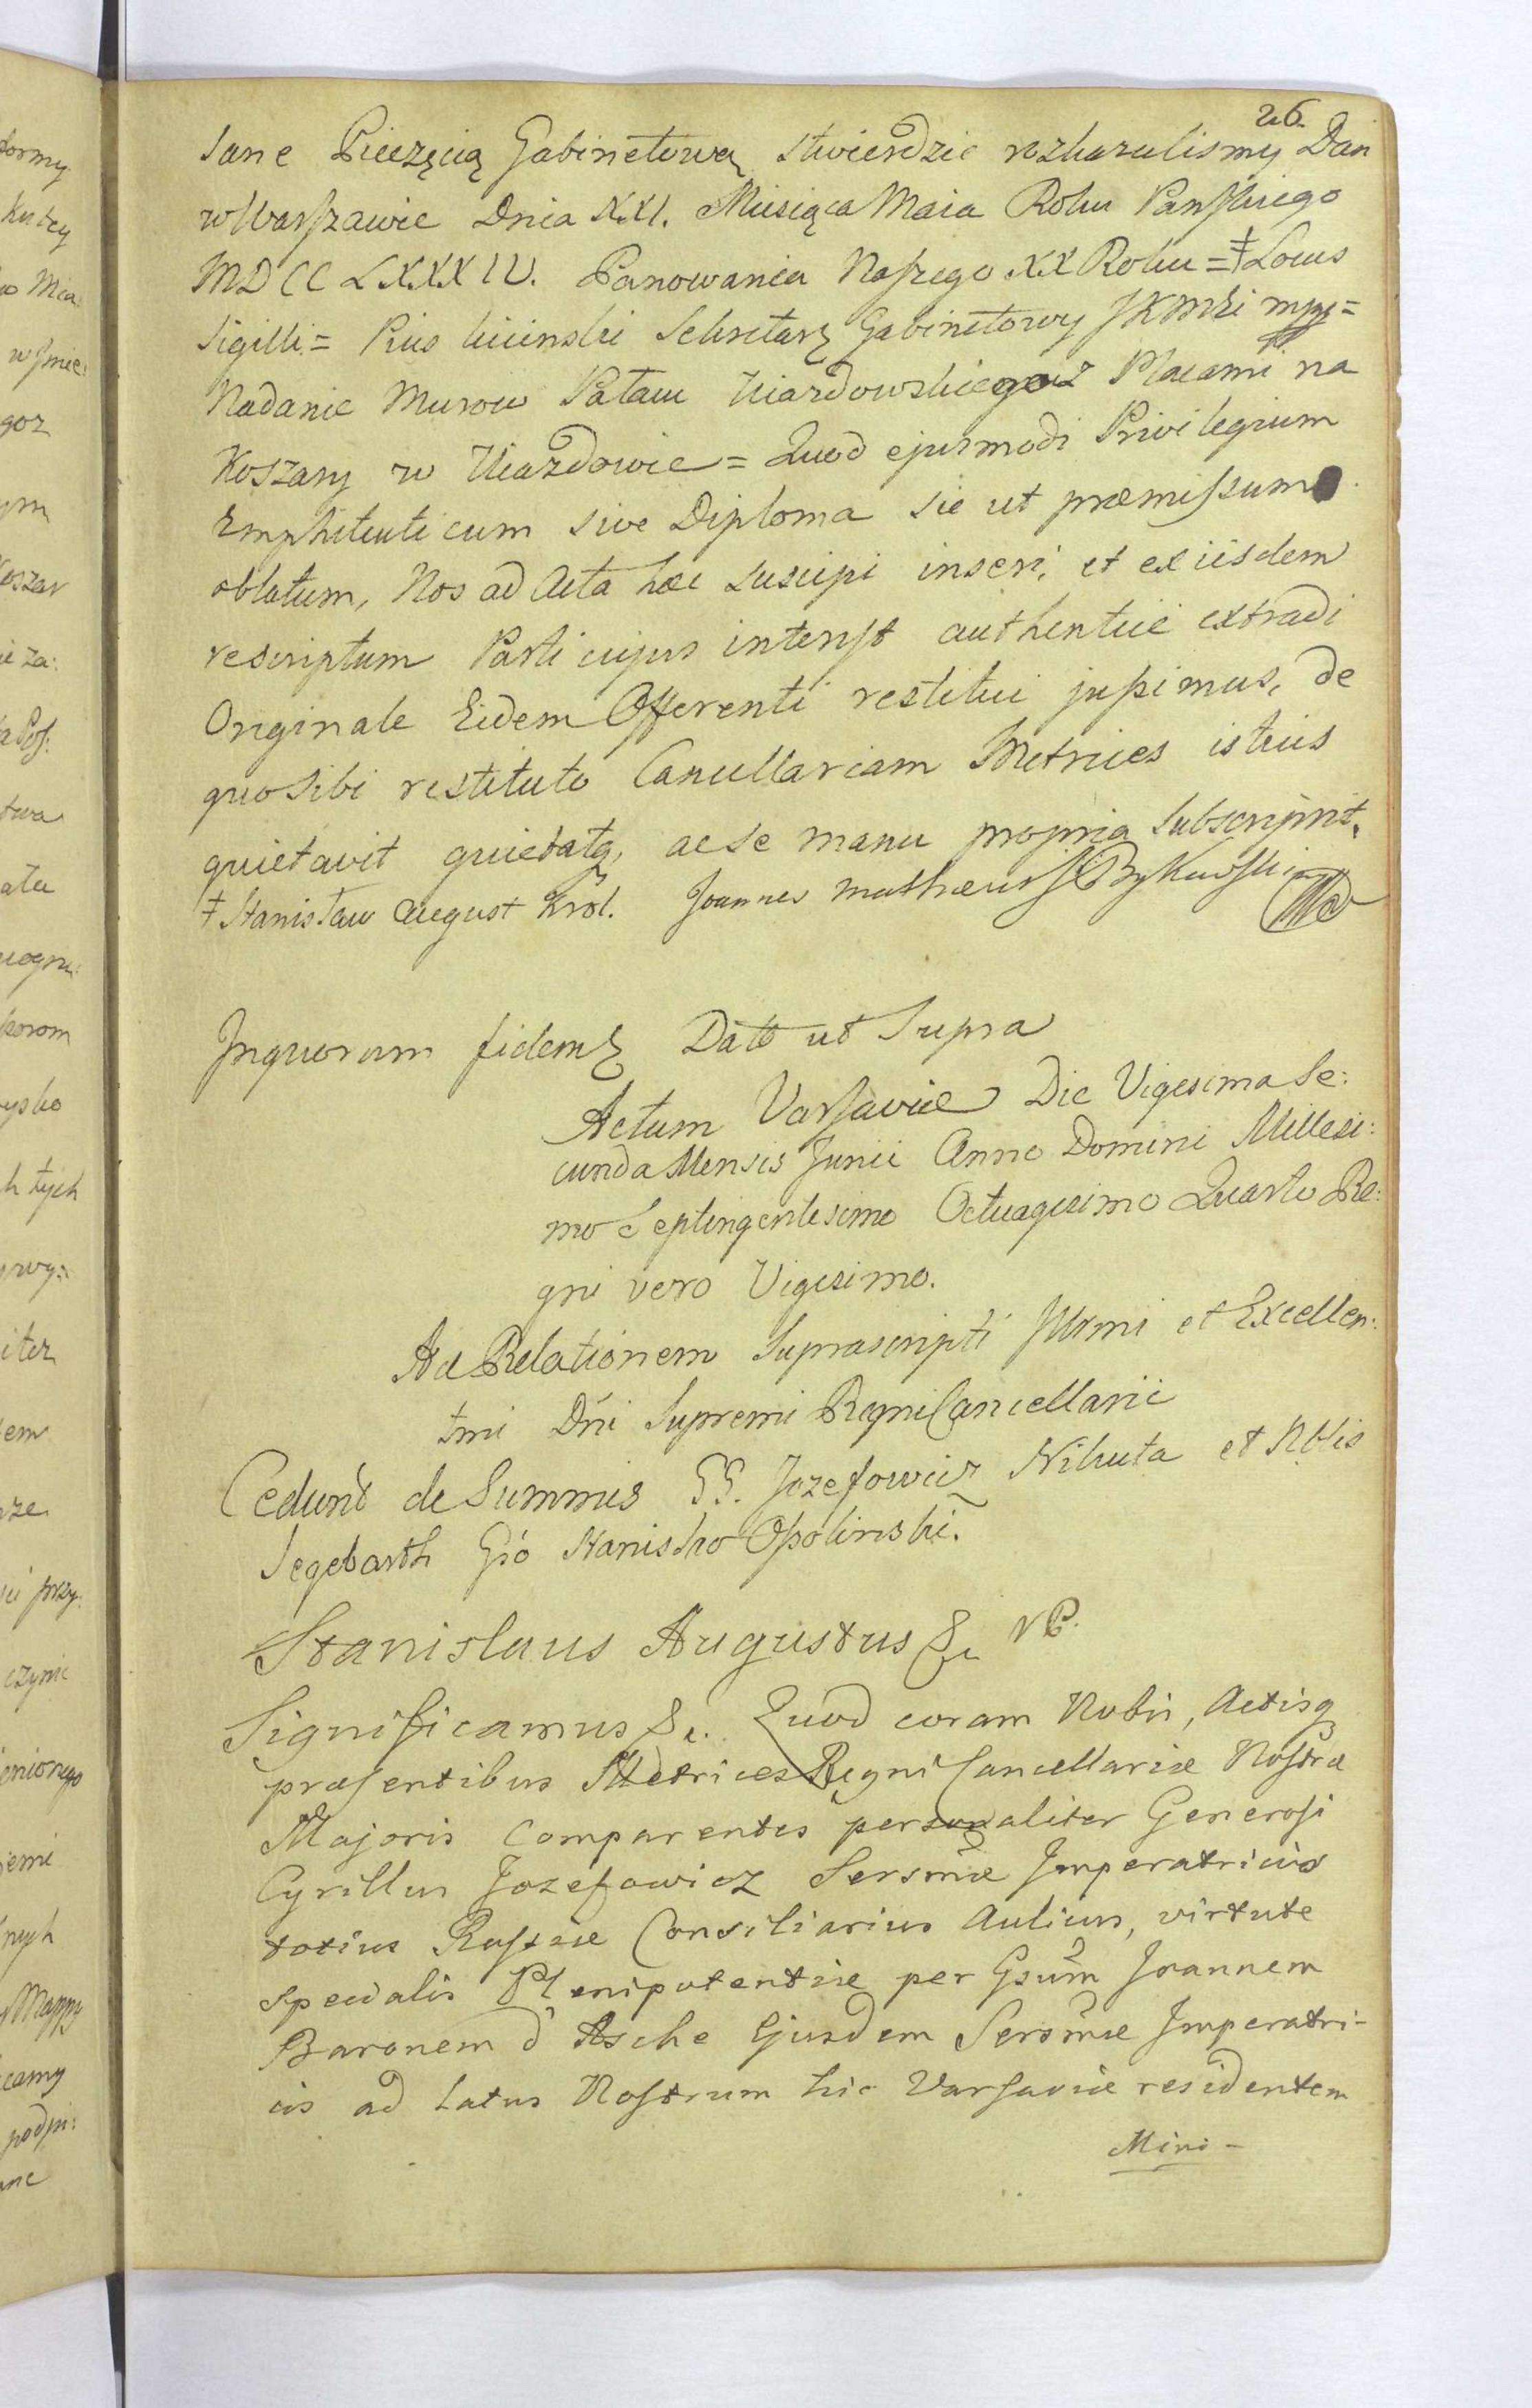 26.
sane Pieczęcią Gabinetową stwierdzic rozkazalismy Dan
w Warszawie Dnia XXI. Miesiąca Maia Roku Panskiego
MDCCLXXXIV. Panowania Naszego XX Roku = ‡ Locus
Sigilli = Pius Kicinski Sekretarz Gabinetowy JKMści mpp =
Nadanie Murow Pałacu Uiazdowskiego z Placami na
Koszary w Uiazdowie = Quod ejusmodi Privilegium
Emphiteuticum sive Diploma sic ut præmissum
oblatum, Nos ad Acta hæc suscipi inseri, et ex iisdem
rescriptum Parti cujus interest authentice extradi
Originale Eidem Offerenti restitui jussimus, de
quo sibi restituto Cancellariam Metrices istius
quietavit quietatq, ac se manu propria subscripsit.
‡ Stanisław August Król. Joannes Mathæus Bykowski
In quorum fidem Datt ut Supra
Actum Varsaviæ Die Vigesima Se:
cunda Mensis Junii Anno Domini Millesi:
mo Septingentesimo Octuagesimo Quarto Re:
gni vero Vigesimo.
Ad Relationem Suprascripti Illrmi et Excellen:
tmi Dni Supremi Regni Cancellarii
Cedunt de Summis GG. Jozefowicz Nikuta et Nblis
Segebarth Gso Stanislao Opolinski.
Stanislaus Augustus &c
Significamus &c. Quod coram Nobis, Actisq
præsentibus Metrices Regni Cancellariæ Nostræ
Majoris Comparentes personaliter Generosi
Cyrillus Jozefowicz Sersmæ Imperatricis
totius Russiæ Consiliarius Aulicus, virtute
specialis Plenipotentiæ per Gsum Joannem
Baronem d Asche Ejusdem Sersmæ Imperatri-
cis ad Latus Nostrum hic Varsaviæ residentem
Mini-